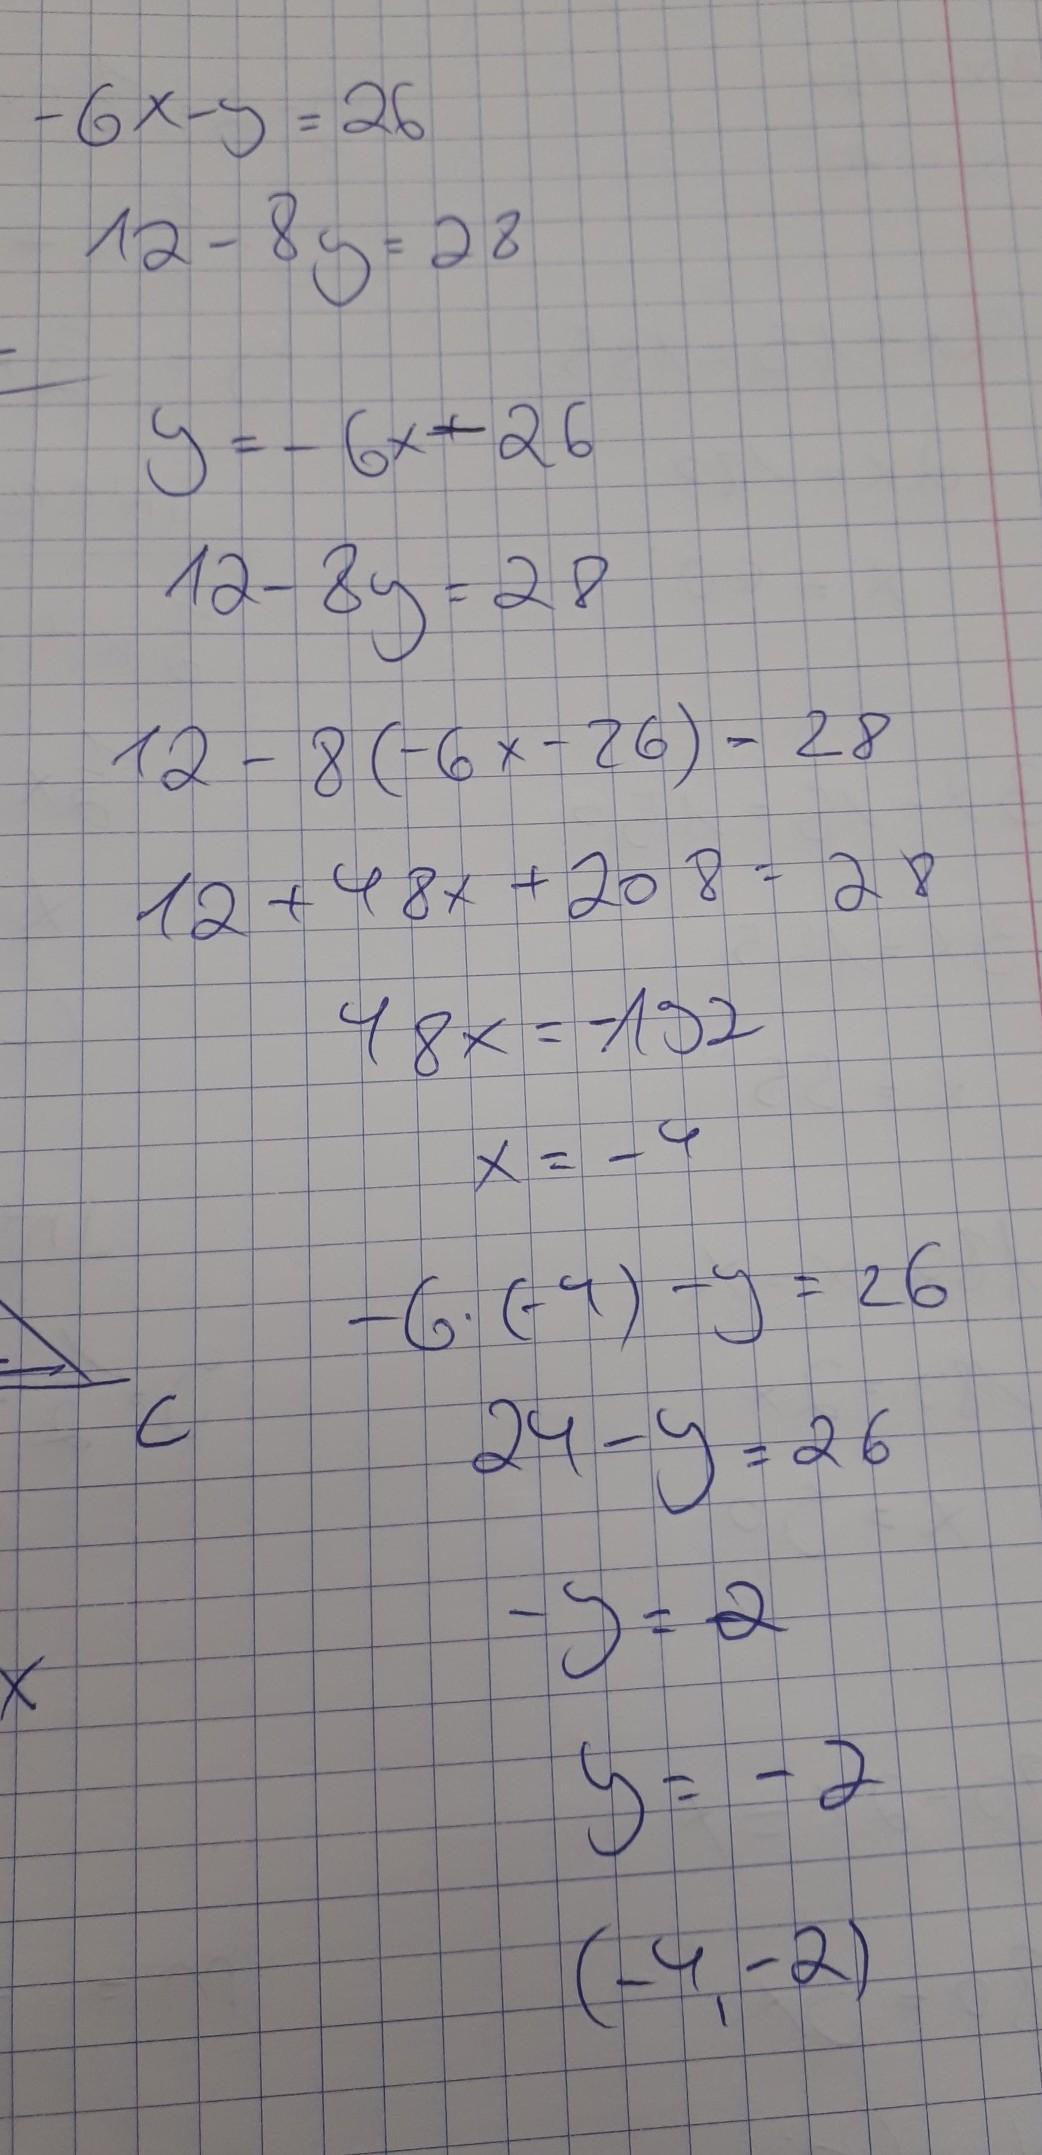 -6x-y = 26
12 - 8y = 28
y = -6x - 26
12 - 8y = 28
12 - 8(-6x - 26) = 28
12 + 48x + 208 = 28
48x = -192
x = -4
-6·(-4) - y = 26
C
24 - y = 26
-y = 2
x
y = -2
(-4, -2)